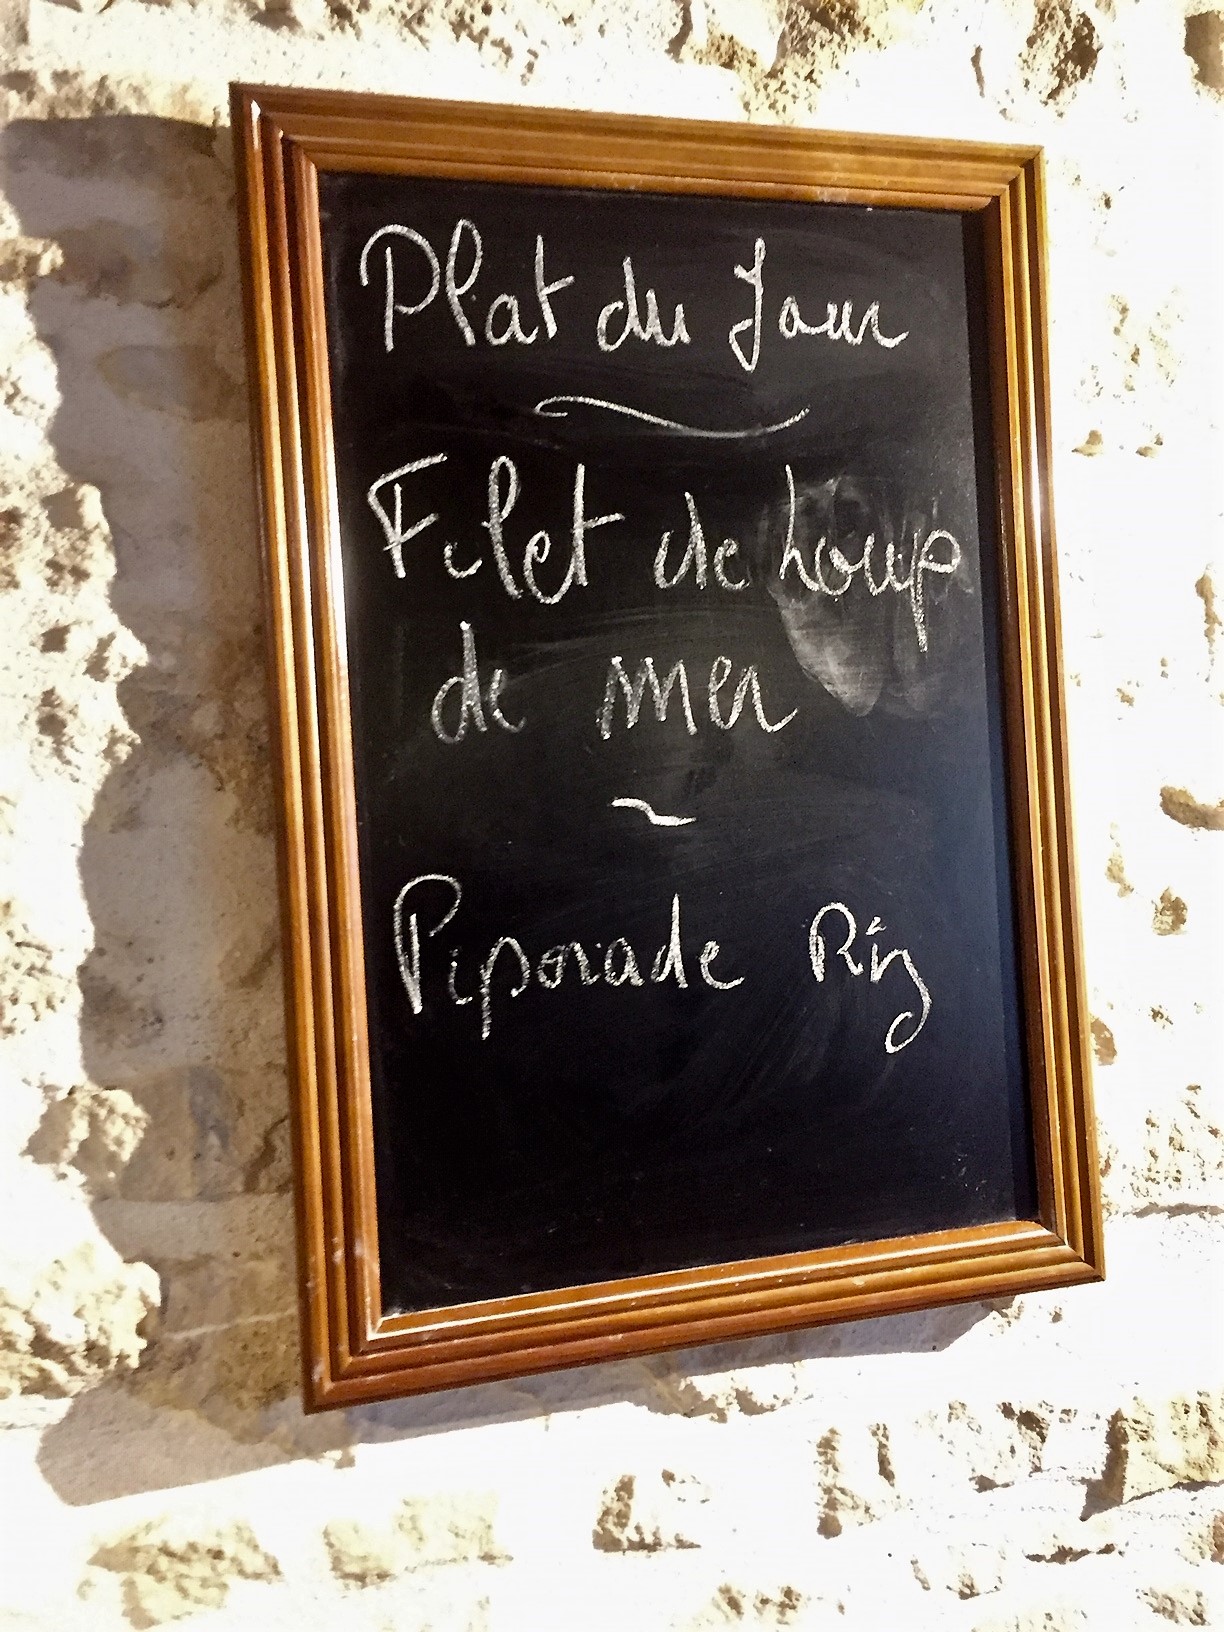 Plat du Jour
Filet de Loup
de mer
Piporade Riz